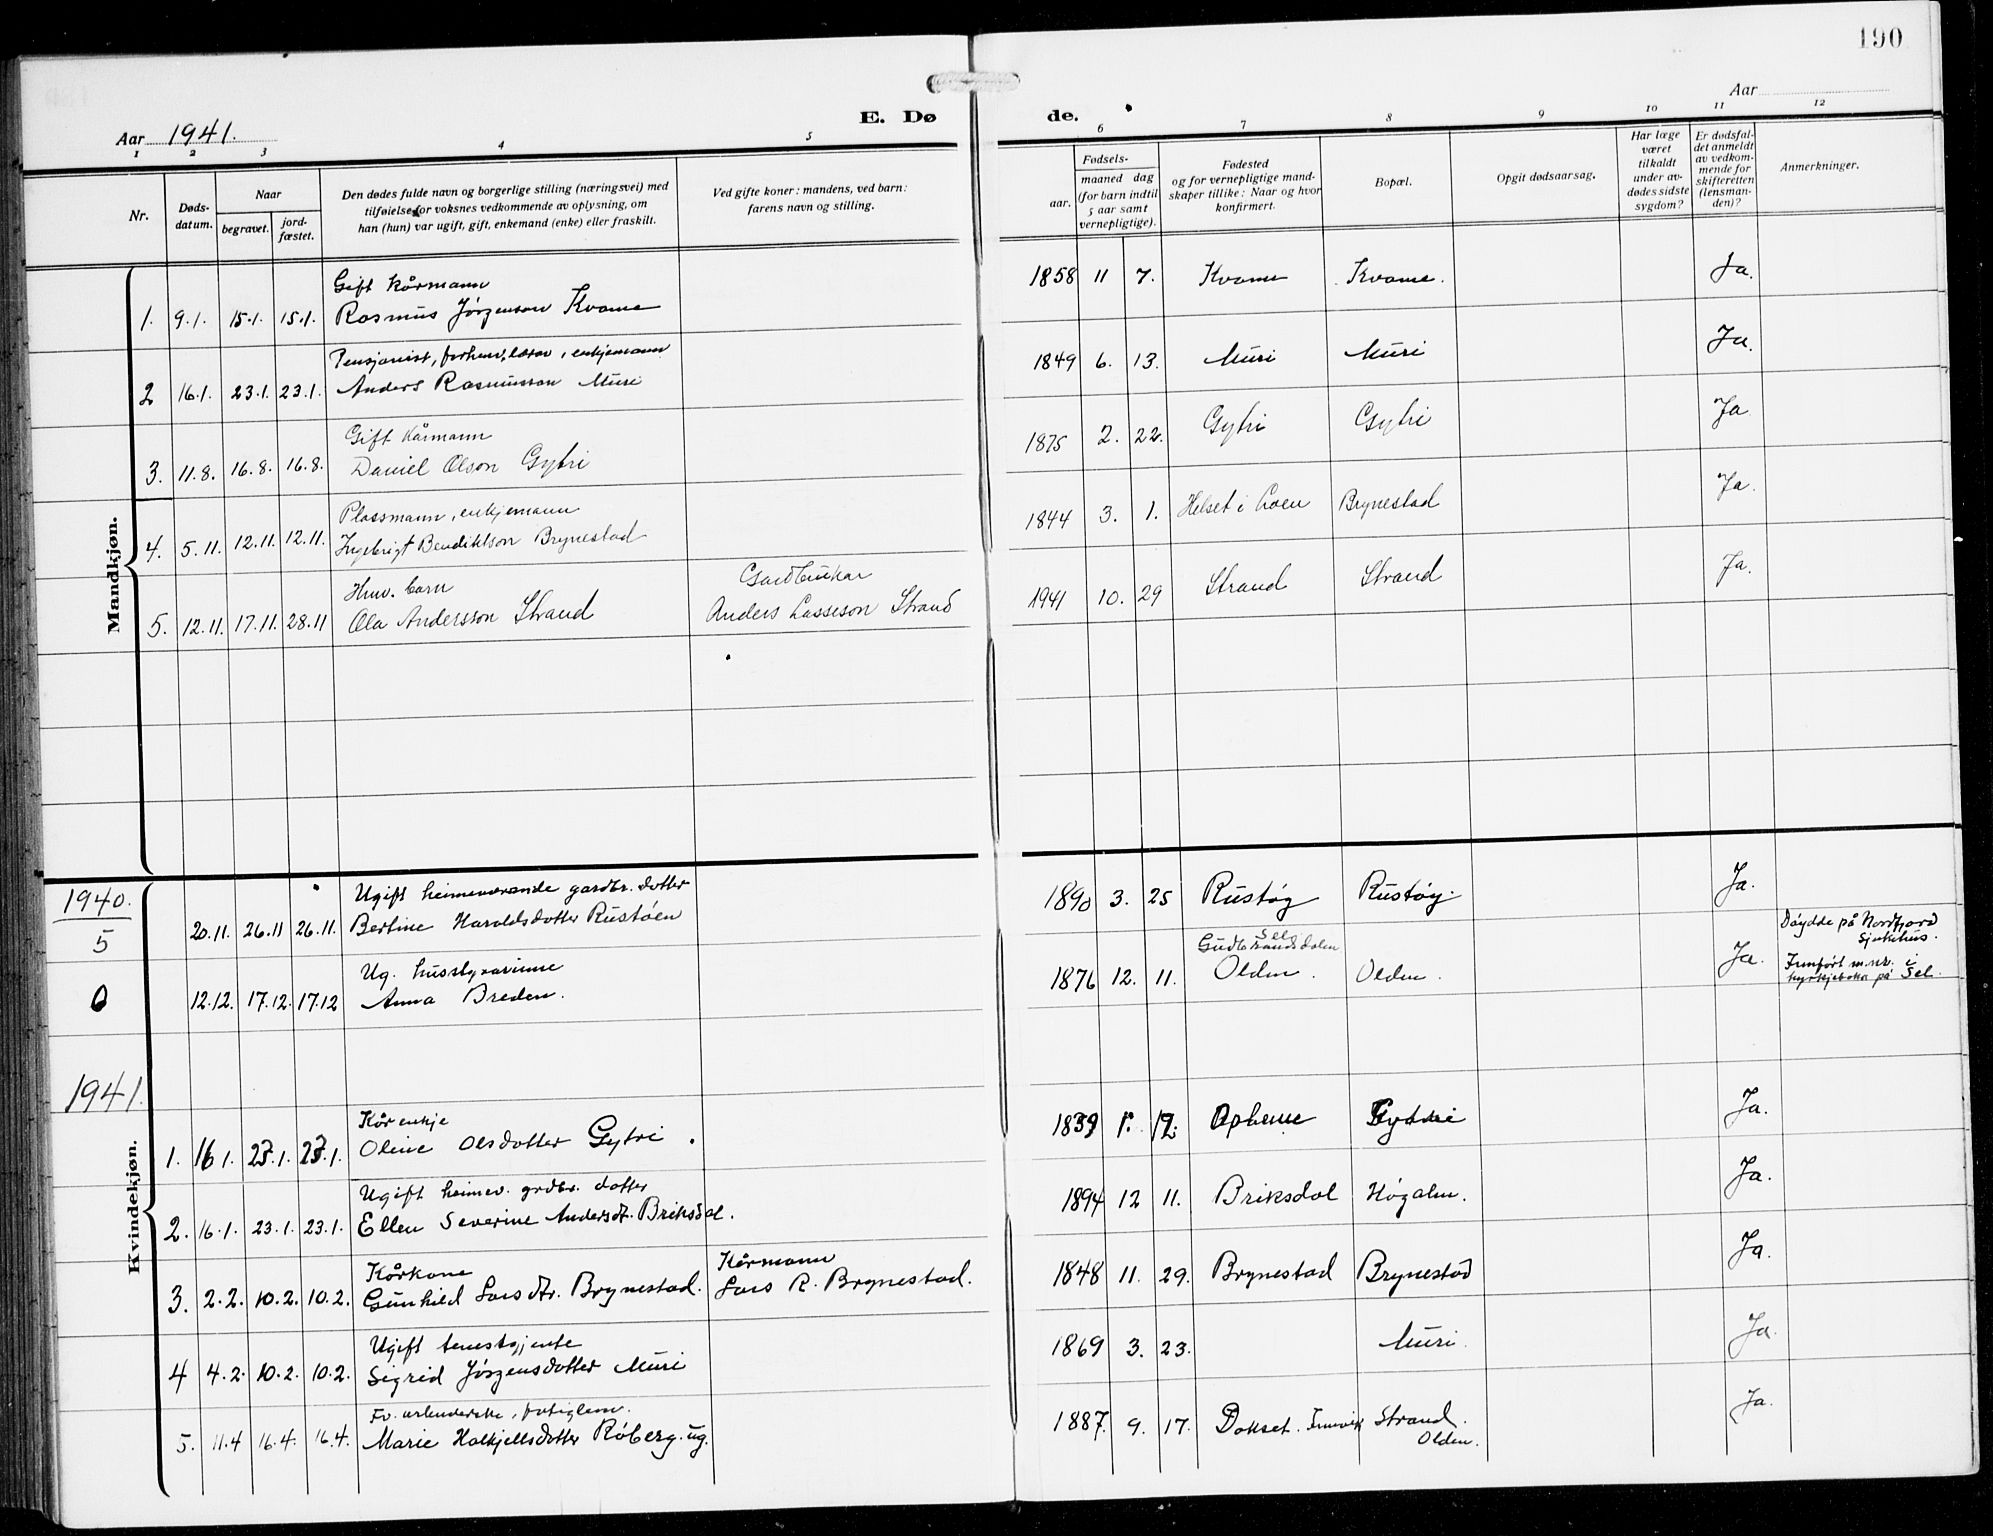 190
Aar 1941.
E. Dø
de.
Aar
1 2 3 4 5
6 7 8 9 10 11 12
Nr.
Døds-
datum.
Naar
begravet.
jord-
fæstet.
Den dødes fulde navn og borgerlige stilling (næringsvei) med
tilføielse for voksnes vedkommende av oplysning, om
han (hun) var ugift, gift, enkemand (enke) eller fraskilt.
Ved gifte koner: mandens, ved barn:
farens navn og stilling.
Fødsels-
aar.
maaned dag
(for barn indtil
5 aar samt
vernepligtige).
Fødested
og for vernepligtige mand-
skaper tillike: Naar og hvor
konfirmert.
Bopæl.
Opgit dødsaarsag.
Har læge
været
tilkaldt
under av-
dødes sidste
sygdom?
Er dødsfal-
det anmeldt
av vedkom-
mende for
skifteretten
(lensman-
den)?
Anmerkninger.
Mandkjøn.
Gift kårmann
1. 9.1. 15.1. 15.1. Rasmus Jørgenson Kvame
1858 11 7. Kvame Kvame. Ja.
Pensjonist, forhenv. lærar, enkjemann
2 16.1. 23.1. 23.1. Anders Rasmusson Muri
1849 6. 13. Muri Muri Ja.
Gift kårmann
3. 11.8. 16.8. 16.8. Daniel Olson Gytri
1875 2. 22. Gytri Gytri Ja
Plassmann, enkjemann
4. 5.11. 12.11. 12.11. Ingebrigt Bendiktson Brynestad
1844 3. 1. Helset i Loen Brynestad Ja.
Hmv. barn Gardbrukar
5. 12.11. 17.11. 28.11 Ola Andersson Strand Anders Lasseson Strand
1941 10. 29 Strand Strand Ja.
Kvindekjøn.
1940.
5
0
Ugift heimeverande gardbr. dotter
20.11. 26.11 26.11. Bertine Haraldsdotter Rustøen
1890 3. 25 Rustøy Rustøy. Ja.
Ug. husstyrarinne
12.12. 17.12. 17.12 Anna Breden.
1876 12. 11. Sel
Gudbrandsdalen
Olden. Olden. Ja.
Døydde på Nordfjord
Sjukehus.
Innført m.nr. i
kyrkjeboka på Sel.
1941.
Kårenkje
1. 16.1. 23.1. 23.1. Oline Olsdotter Gytri.
1839 1. 12. Opheim Gytri Ja.
Ugift heimev. grdbr. dotter
2. 16.1. 23.1. 23.1. Ellen Severine Andersdt. Briksdal.
1894 12 11. Briksdal Høgalm. Ja.
Kårkone Kårmann
3. 2.2. 10.2. 10.2. Gunhild Larsdtr. Brynestad. Lars R. Brynestad.
1848 11. 29. Brynestad Brynestad Ja.
Ugift tenestgjente
4 4.2. 10.2. 10.2. Sigrid Jørgensdotter Muri
1869 3. 23. Muri. Ja.
Fv. arbenderske, fatiglem.
5. 11.4 16.4. 16.4. Marie Halkjellsdotter Røberg. ug.
1887. 9. 17. Dokset. Innvik Strand.
Olden. Ja.